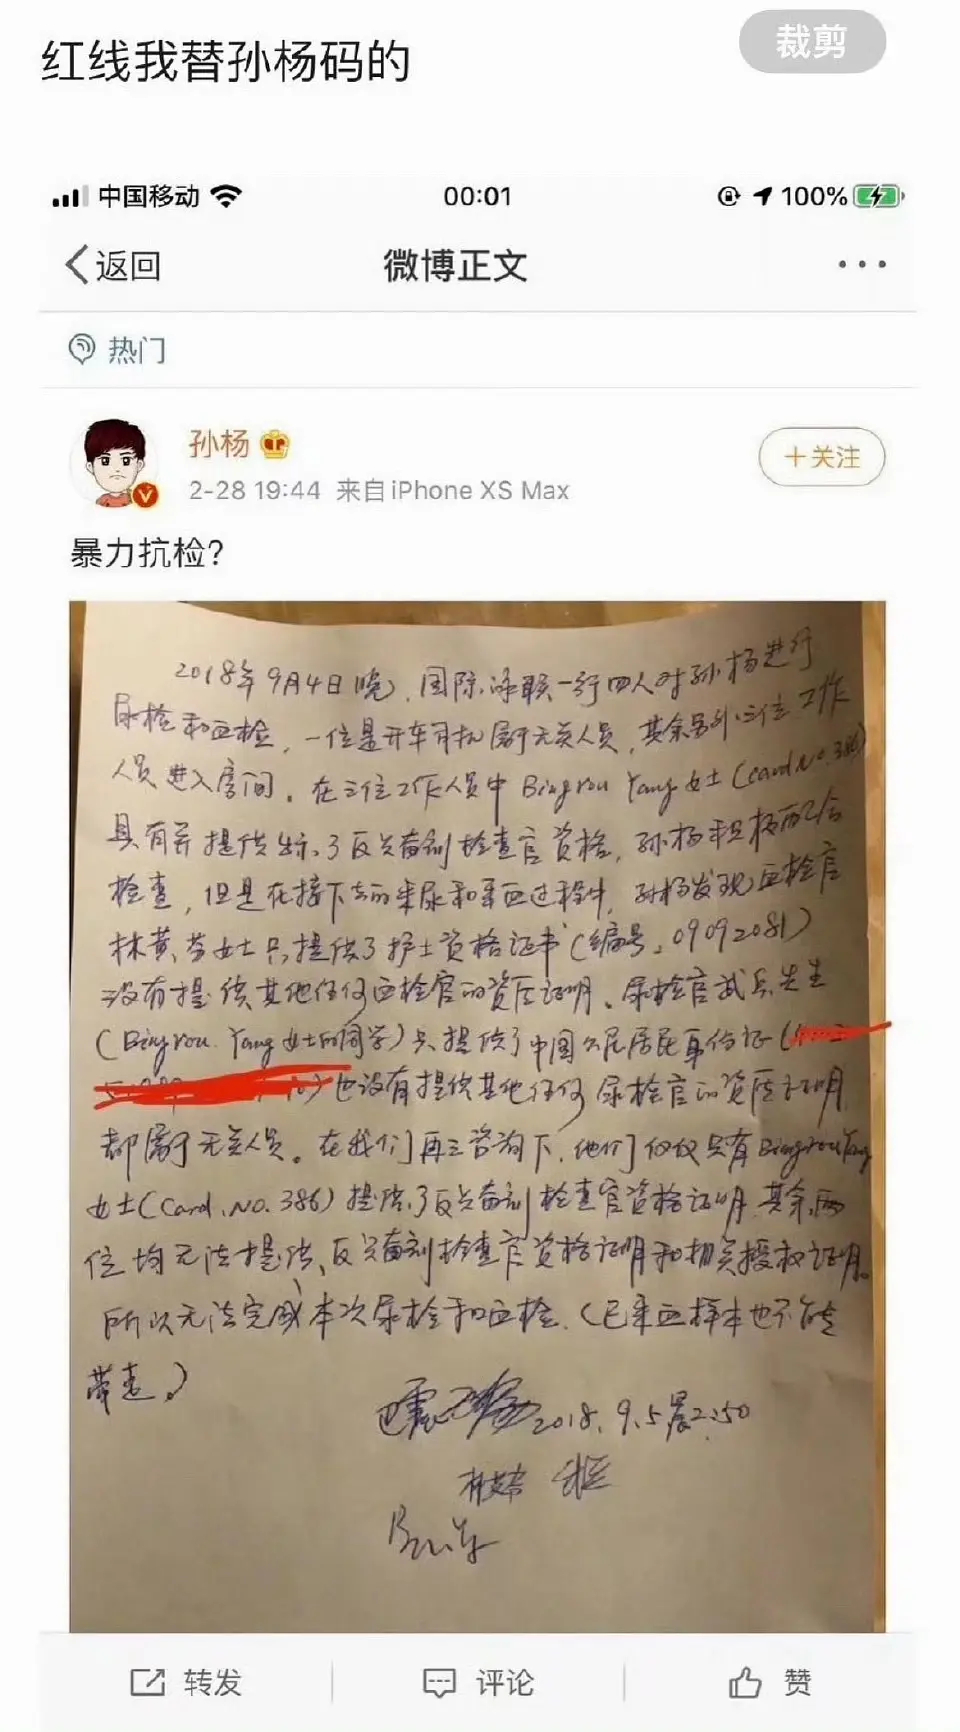 红线我替孙杨码的
裁剪
中国移动 00:01 100%
返回 微博正文
热门
孙杨
+关注
2-28 19:44 来自iPhone XS Max
暴力抗检?
2018年9月4日晚,国际泳联一行四人对孙杨进行
尿检和血检,一位是开车司机属于无关人员,其余另外三位工作
人员进入房间。在三位工作人员中Bingrou Yang女士(card No.386)
具有并提供出示了反兴奋剂检查官资格,孙杨积极配合
检查,但是在接下去的采尿和采血过程中,孙杨发现血检官
林黄芬女士只提供了护士资格证书(编号:09092081)
没有提供其他任何血检官的资质证明、尿检官武兵先生
(Bingrou Yang女士的同学)只提供了中国公民居民身份证(
)也没有提供其他任何尿检官的资质证明
都属于无关人员。在我们再三咨询下,他们仅仅只有Bingrou Yang
女士(Card.No.386)提供了反兴奋剂检查官资格证明,其余两
位均无法提供、反兴奋剂检查官资格证明和相关授权证明。
所以无法完成本次尿检和血检.(已采血样本也不能
带走。)
2018.9.5晨2:50
转发 评论 赞